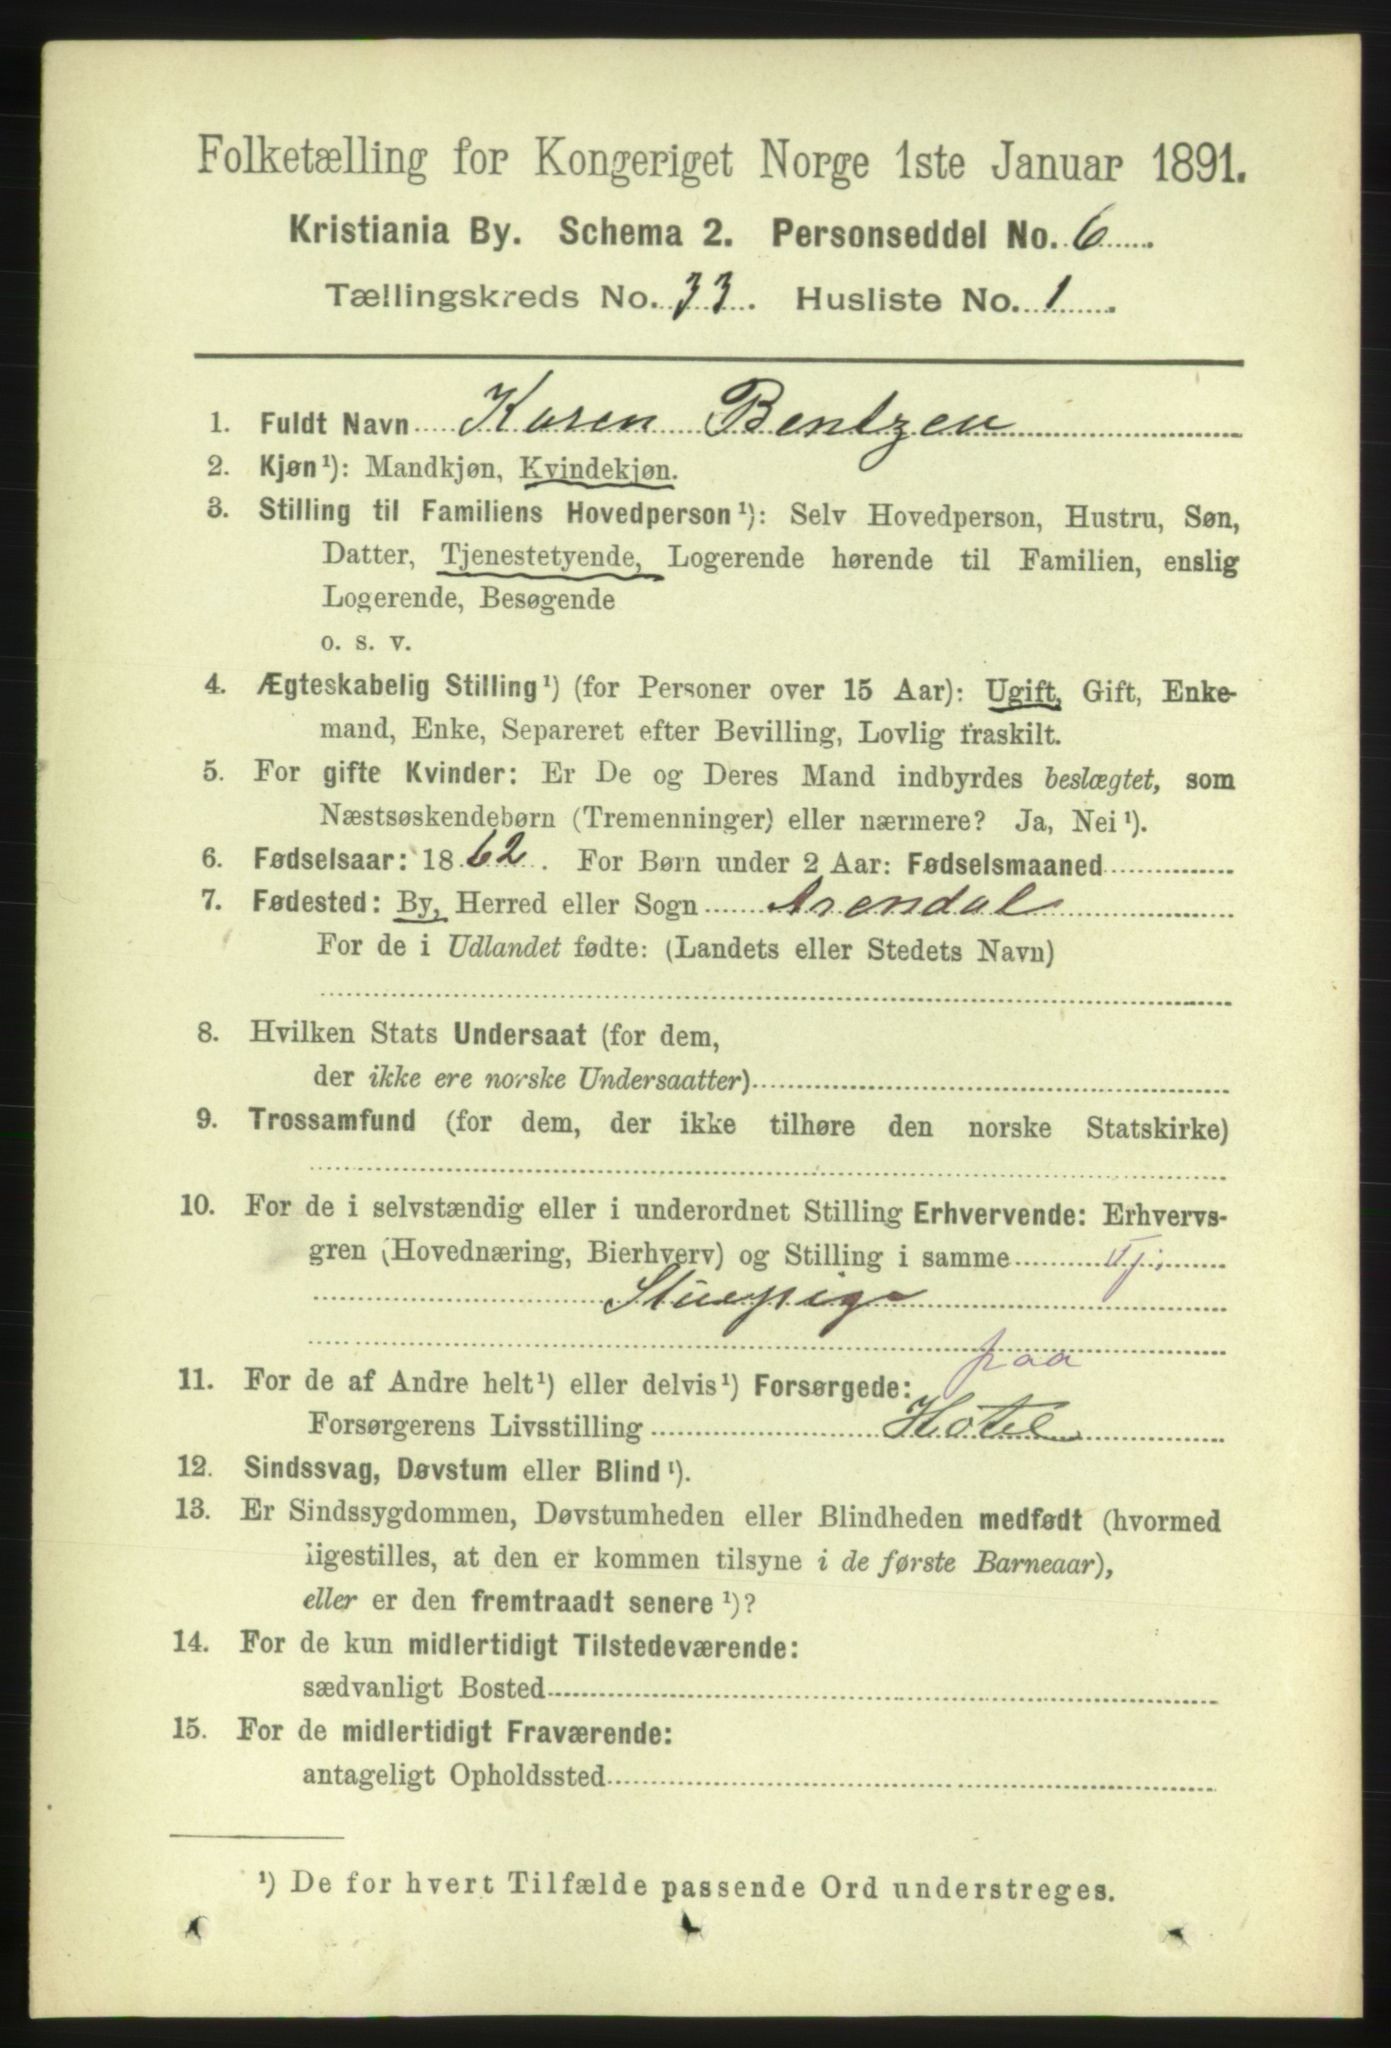 Folketælling for Kongeriget Norge 1ste Januar 1891.
Kristiania By. Schema 2. Personseddel No. 6
Tællingskreds No. 33. Husliste No. 1.
1. Fuldt Navn Karen Bentzen
2. Kjøn¹): Mandkjøn, Kvindekjøn.
3. Stilling til Familiens Hovedperson¹): Selv Hovedperson, Hustru, Søn,
Datter, Tjenestetyende, Logerende hørende til Familien, enslig
Logerende, Besøgende
o. s. v.
4. Ægteskabelig Stilling¹) (for Personer over 15 Aar): Ugift, Gift, Enke-
mand, Enke, Separeret efter Bevilling, Lovlig fraskilt.
5. For gifte Kvinder: Er De og Deres Mand indbyrdes beslægtet, som
Næstsøskendebørn (Tremenninger) eller nærmere? Ja, Nei¹).
6. Fødselsaar: 1862. For Børn under 2 Aar: Fødselsmaaned
7. Fødested: By, Herred eller Sogn Arendal
For de i Udlandet fødte: (Landets eller Stedets Navn)
8. Hvilken Stats Undersaat (for dem,
der ikke ere norske Undersaatter)
9. Trossamfund (for dem, der ikke tilhøre den norske Statskirke)
10. For de i selvstændig eller i underordnet Stilling Erhvervende: Erhvervs-
gren (Hovednæring, Bierhverv) og Stilling i samme Tj.
Stuepige
paa
11. For de af Andre helt¹) eller delvis¹) Forsørgede:
Forsørgerens Livsstilling Hotel
12. Sindssvag, Døvstum eller Blind¹).
13. Er Sindssygdommen, Døvstumheden eller Blindheden medfødt (hvormed
ligestilles, at den er kommen tilsyne i de første Barneaar),
eller er den fremtraadt senere¹)?
14. For de kun midlertidigt Tilstedeværende:
sædvanligt Bosted
15. For de midlertidigt Fraværende:
antageligt Opholdssted
¹) De for hvert Tilfælde passende Ord understreges.